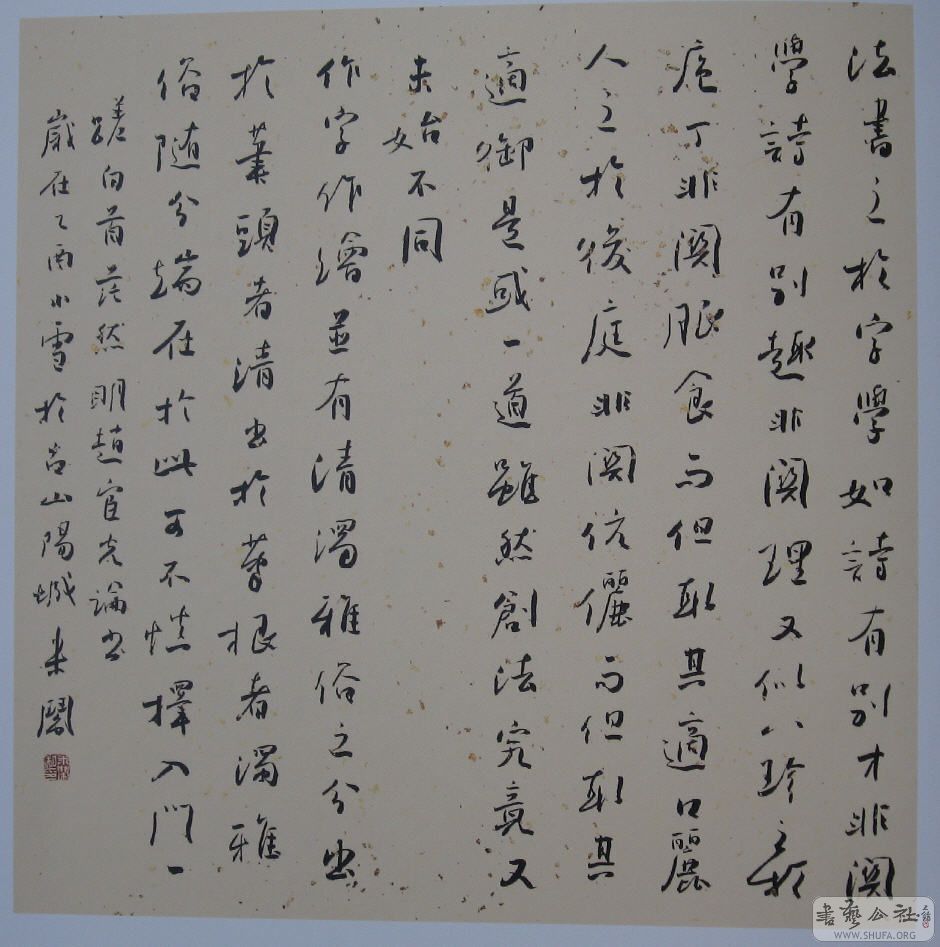 法書之於字學如詩有別才非關
學詩有別趣非關理又似八珍之於
庖丁非關服食而但取其適口麗
人之於後庭非關伉儷而但取其
適御是或一道雖然創法究竟又
未始不同
作字作繪並有清濁雅俗之分出
於葉頭者清出於莖根者濁雅
俗隨分端在於此可不慎擇入門一
蹉白首茫然明趙宧光論書
歲在乙酉小雪於古山陽城朱
書藝公社
WWW.SHUFA.ORG